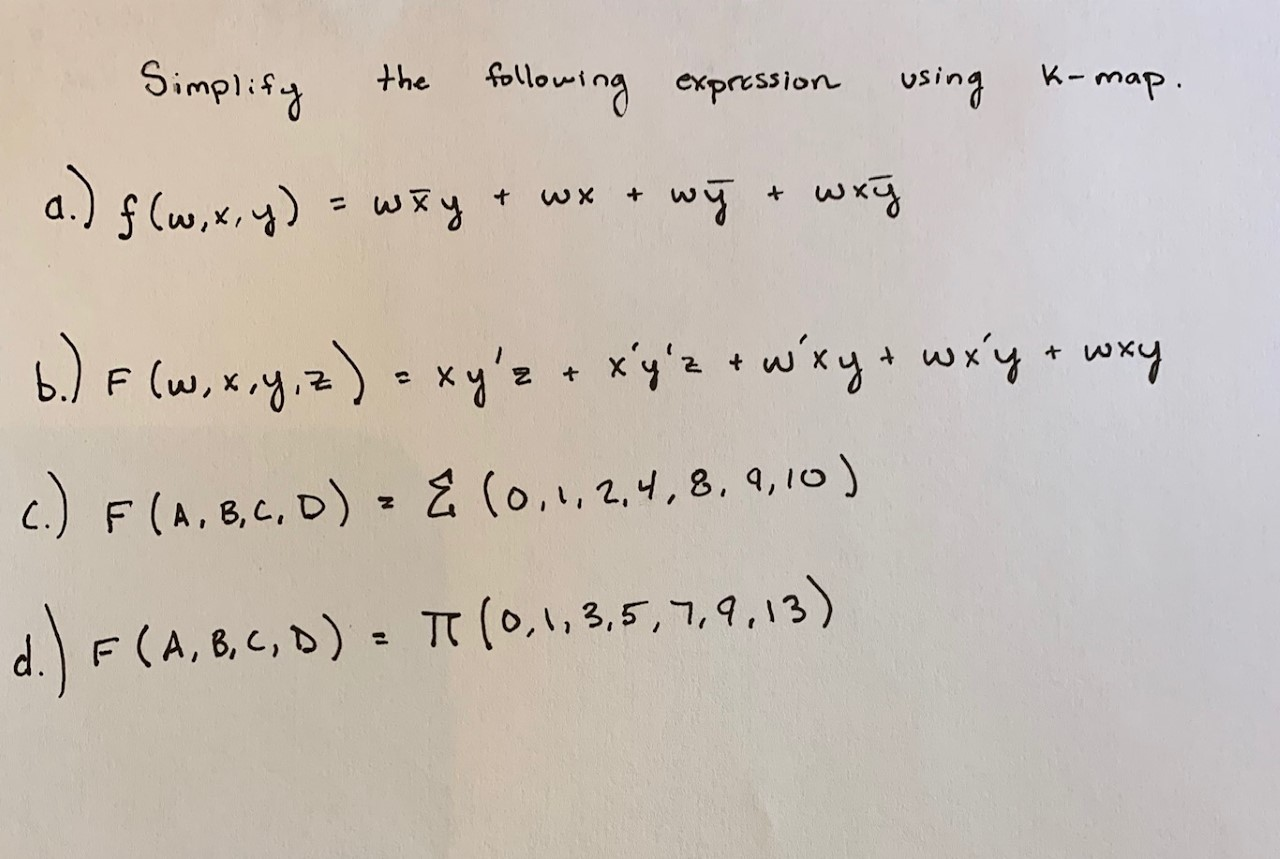 Simplify the following expression using K-map.
a.) f(w,x,y) = wx̄y + wx + wȳ + wxȳ
b.) F(w,x,y,z) = xy'z + x'y'z + w'xy + wx'y + wxy
c.) F(A,B,C,D) = Σ(0,1,2,4,8,9,10)
d.) F(A,B,C,D) = π(0,1,3,5,7,9,13)